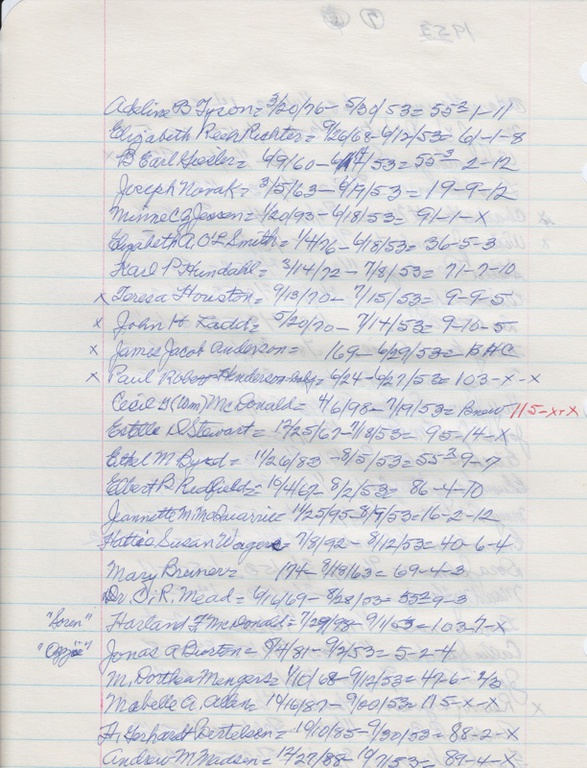 1953
7
Adeline B Tyson = 3/20/76 - 5/30/53 = 55² 1-11
Elizabeth Rech Richter = 9/26/68 - 6/12/53 = 61-1-8
x B Earl = 6/9/60 - /53 = 55³-2-12
Joseph Novak = 3/5/63 - 6/17/53 = 19-9-12
Minne = 1/20/93 - 6/18/53 = 91-1-X
Elizabeth A. Smith = 1/4/76 - 6/18/53 = 36-5-3
Karl P Hundahl = 3/14/72 - 7/8/53 = 71-7-10
x Teresa Houston = 9/13/70 - 7/15/53 = 9-9-5
x John H Ladd = 5/20/70 - 7/14/53 = 9-10-5
x James Jacob Anderson = 169 - 6/29/53 = BHC
x Paul Robert Henderson = 6/24 - 6/27/53 = 103-X-X
Cecil G (Wm) McDonald = 4/6/98 - 7/9/53 = 115-X-X
Estelle D Stewart = 12/25/67 - 7/18/53 = 95-14-X
Ethel M Byrd = 11/26/83 - 8/5/53 = 55³ 9-7
Elbert B Redfield = 10/4/67 - 8/2/53 = 86-4-10
Jeannette M. McQuarrie = 11/25/95 - 8/9/53 = 16-2-12
Hattie Susan Wagers = 7/8/92 - 8/12/53 = 40-6-4
Mary Breiner = 174 - 8/18/63 = 69-4-3
Dr. O.R. Mead = 6/16/69 - 8/28/53 = 55² 9-3
"Loren" Harland F McDonald = 7/29/98 - 9/1/53 = 103-7-X
Jonas A Burton = 8/4/81 - 9/2/53 = 5-2-4
M. Dorthea Mengers = 1/10/68 - 9/12/53 = 47-6-2/3
Mabelle A. Allen = 10/16/87 - 9/20/53 = 115-X-X
H. Gerhardt Bertelsen = 10/10/85 - 9/30/53 = 88-2-X
Andrew M Madsen = 12/27/88 - 10/7/53 = 89-4-X